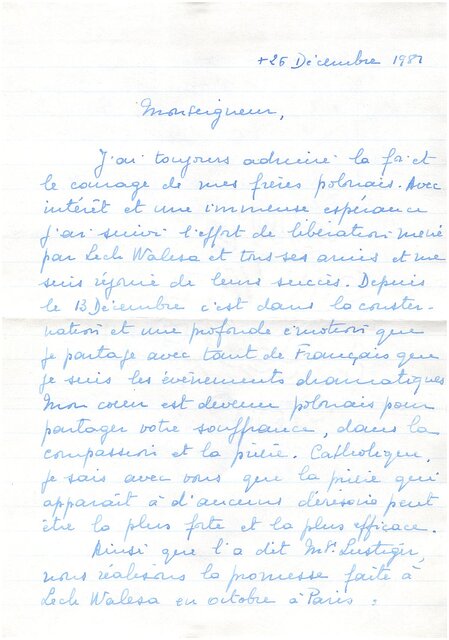 +26 Décembre 1981
Monseigneur,
J'ai toujours admiré la foi et
le courage de mes frères polonais. Avec
intérêt et une immense espérance
j'ai suivi l'effort de libération mené
par Lech Walesa et tous ses amis et me
suis réjouie de leurs succès. Depuis
le 13 Décembre c'est dans la conster-
nation et une profonde émotion que
je partage avec tant de Français que
je suis les évènements dramatiques
Mon coeur est devenu polonais pour
partager votre souffrance, dans la
compassion et la prière. Catholique,
je sais avec vous que la prière qui
apparaît à d'aucuns dérisoire peut
être la plus forte et la plus efficace.
Ainsi que l'a dit Mgr. Lustiger,
nous réalisons la promesse faite à
Lech Walesa en octobre à Paris :